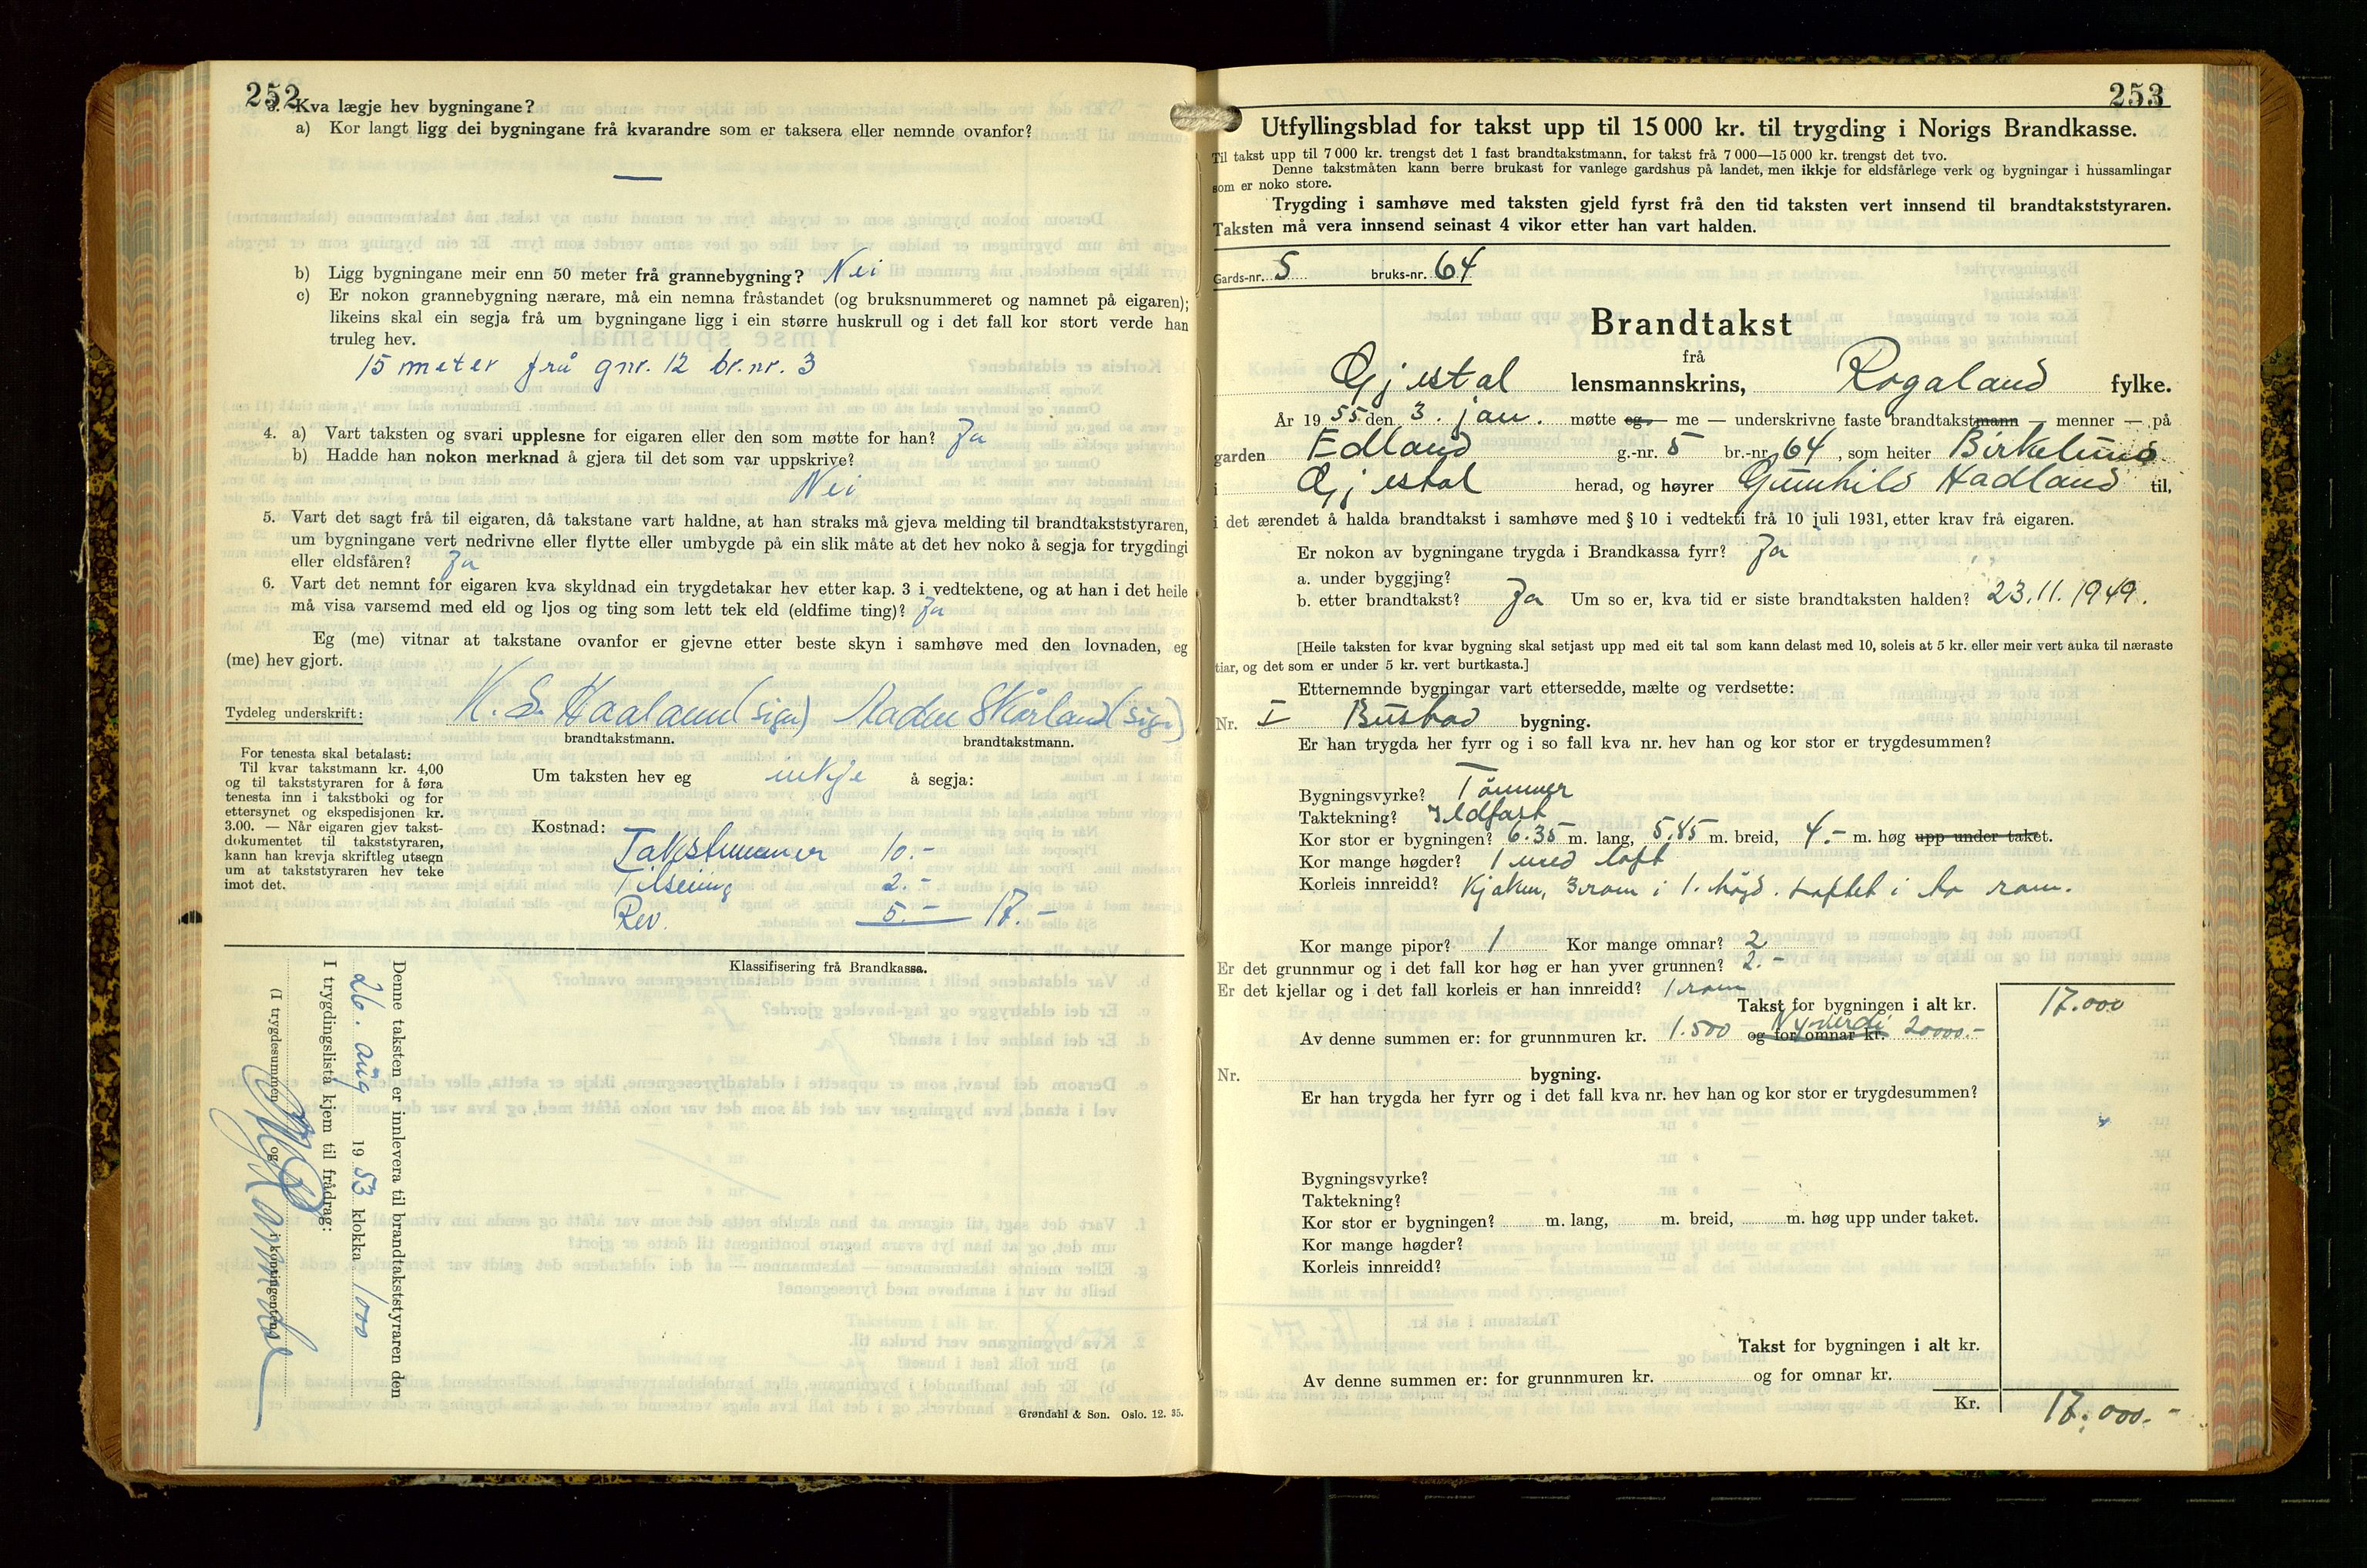 252
3. Kva lægje hev bygningane?
a) Kor langt ligg dei bygningane frå kvarandre som er taksera eller nemnde ovanfor?
—
b) Ligg bygningane meir enn 50 meter frå grannebygning? Nei
c) Er nokon grannebygning nærare, må ein nemna fråstandet (og bruksnummeret og namnet på eigaren);
likeins skal ein segja frå um bygningane ligg i ein større huskrull og i det fall kor stort verde han
truleg hev.
15 meter frå gnr. 12 br.nr. 3
4. a) Vart taksten og svari upplesne for eigaren eller den som møtte for han? Ja
b) Hadde han nokon merknad å gjera til det som var uppskrive?
Nei
5. Vart det sagt frå til eigaren, då takstane vart haldne, at han straks må gjeva melding til brandtakststyraren,
um bygningane vert nedrivne eller flytte eller umbygde på ein slik måte at det hev noko å segja for trygdingi
eller eldsfåren? Ja
6. Vart det nemnt for eigaren kva skyldnad ein trygdetakar hev etter kap. 3 i vedtektene, og at han i det heile
må visa varsemd med eld og ljos og ting som lett tek eld (eldfime ting)? Ja
Eg (me) vitnar at takstane ovanfor er gjevne etter beste skyn i samhøve med den lovnaden, eg
(me) hev gjort.
Tydeleg underskrift: K. S. Haaland (sign) Skårland (sign)
brandtakstmann. brandtakstmann.
For tenesta skal betalast:
Til kvar takstmann kr. 4,00
og til takststyraren for å føra
tenesta inn i takstboki og for
ettersynet og ekspedisjonen kr.
3.00. — Når eigaren gjev takst-
dokumentet til takststyraren,
kann han krevja skriftleg utsegn
um at takststyraren hev teke
imot det.
Um taksten hev eg inkje å segja:
Kostnad:
Takstmenner 10.-
Tilsening 2.-
Rev. 5.- 17.-
Klassifisering frå Brandkassa.
Denne taksten er innlevera til brandtakststyraren den
26. aug 1953 klokka 1000
I trygdingslista kjem til frådrag:
(I trygdesummen og i kontingenten)
Grøndahl & Søn. Oslo. 12. 35.
253
Utfyllingsblad for takst upp til 15 000 kr. til trygding i Norigs Brandkasse.
Til takst upp til 7 000 kr. trengst det 1 fast brandtakstmann, for takst frå 7 000—15 000 kr. trengst det tvo.
Denne takstmåten kann berre brukast for vanlege gardshus på landet, men ikkje for eldsfårlege verk og bygningar i hussamlingar
som er noko store.
Trygding i samhøve med taksten gjeld fyrst frå den tid taksten vert innsend til brandtakststyraren.
Taksten må vera innsend seinast 4 vikor etter han vart halden.
Gards-nr. 5 bruks-nr. 64
Brandtakst
frå
Gjestal lensmannskrins, Rogaland fylke.
År 1955 den 3. jan. møtte eg — me — underskrivne faste brandtakstmann — menner — på
garden Edland g.-nr. 5 br.-nr. 64, som heiter Birkelund
i Gjestal herad, og høyrer Gunnhild Hadland til,
i det ærendet å halda brandtakst i samhøve med § 10 i vedtekti frå 10 juli 1931, etter krav frå eigaren.
Er nokon av bygningane trygda i Brandkassa fyrr? Ja
a. under byggjing?
b. etter brandtakst? Ja Um so er, kva tid er siste brandtaksten halden? 23.11.1949.
[Heile taksten for kvar bygning skal setjast upp med eit tal som kann delast med 10, soleis at 5 kr. eller meir vert auka til næraste
tiar, og det som er under 5 kr. vert burtkasta.]
Etternemnde bygningar vart ettersedde, mælte og verdsette:
Nr. I Bustad bygning.
Er han trygda her fyrr og i so fall kva nr. hev han og kor stor er trygdesummen?
—
Bygningsvyrke? Tømmer
Taktekning? Ildfast
Kor stor er bygningen? 6.35 m. lang, 5.85 m. breid, 4.- m. høg upp under taket.
Kor mange høgder? 1 med loft
Korleis innreidd? Kjøken, 3 rom i 1. høgd. Loftet i to rom.
Kor mange pipor? 1 Kor mange omnar? 2
Er det grunnmur og i det fall kor høg er han yver grunnen? 2.-
Er det kjellar og i det fall korleis er han innreidd? 1 rom
Takst for bygningen i alt kr. 17.000
Av denne summen er: for grunnmuren kr. 1.500 og for omnar kr. Nyverdi 20000.-
Nr. bygning.
Er han trygda her fyrr og i det fall kva nr. hev han og kor stor er trygdesummen?
Bygningsvyrke?
Taktekning?
Kor stor er bygningen? m. lang, m. breid, m. høg upp under taket.
Kor mange høgder?
Korleis innreidd?
Takst for bygningen i alt kr.
Av denne summen er: for grunnmuren kr. og for omnar kr.
Kr. 17.000.-